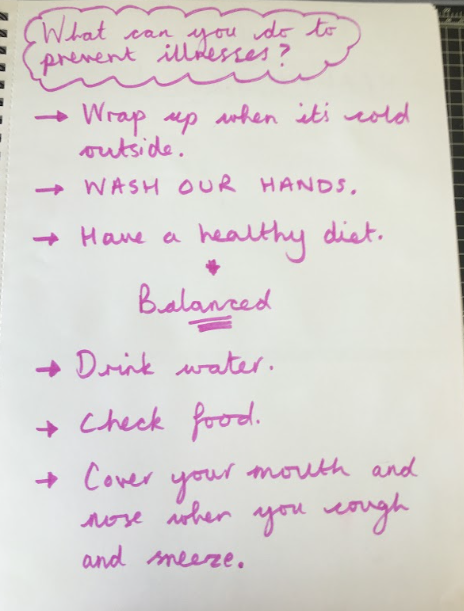 What can you do to
prevent illnesses?
→ Wrap up when it's cold
outside.
→ WASH OUR HANDS.
→ Have a healthy diet.
Balanced
→ Drink water.
→ Check food.
→ Cover your mouth and
nose when you cough
and sneeze.